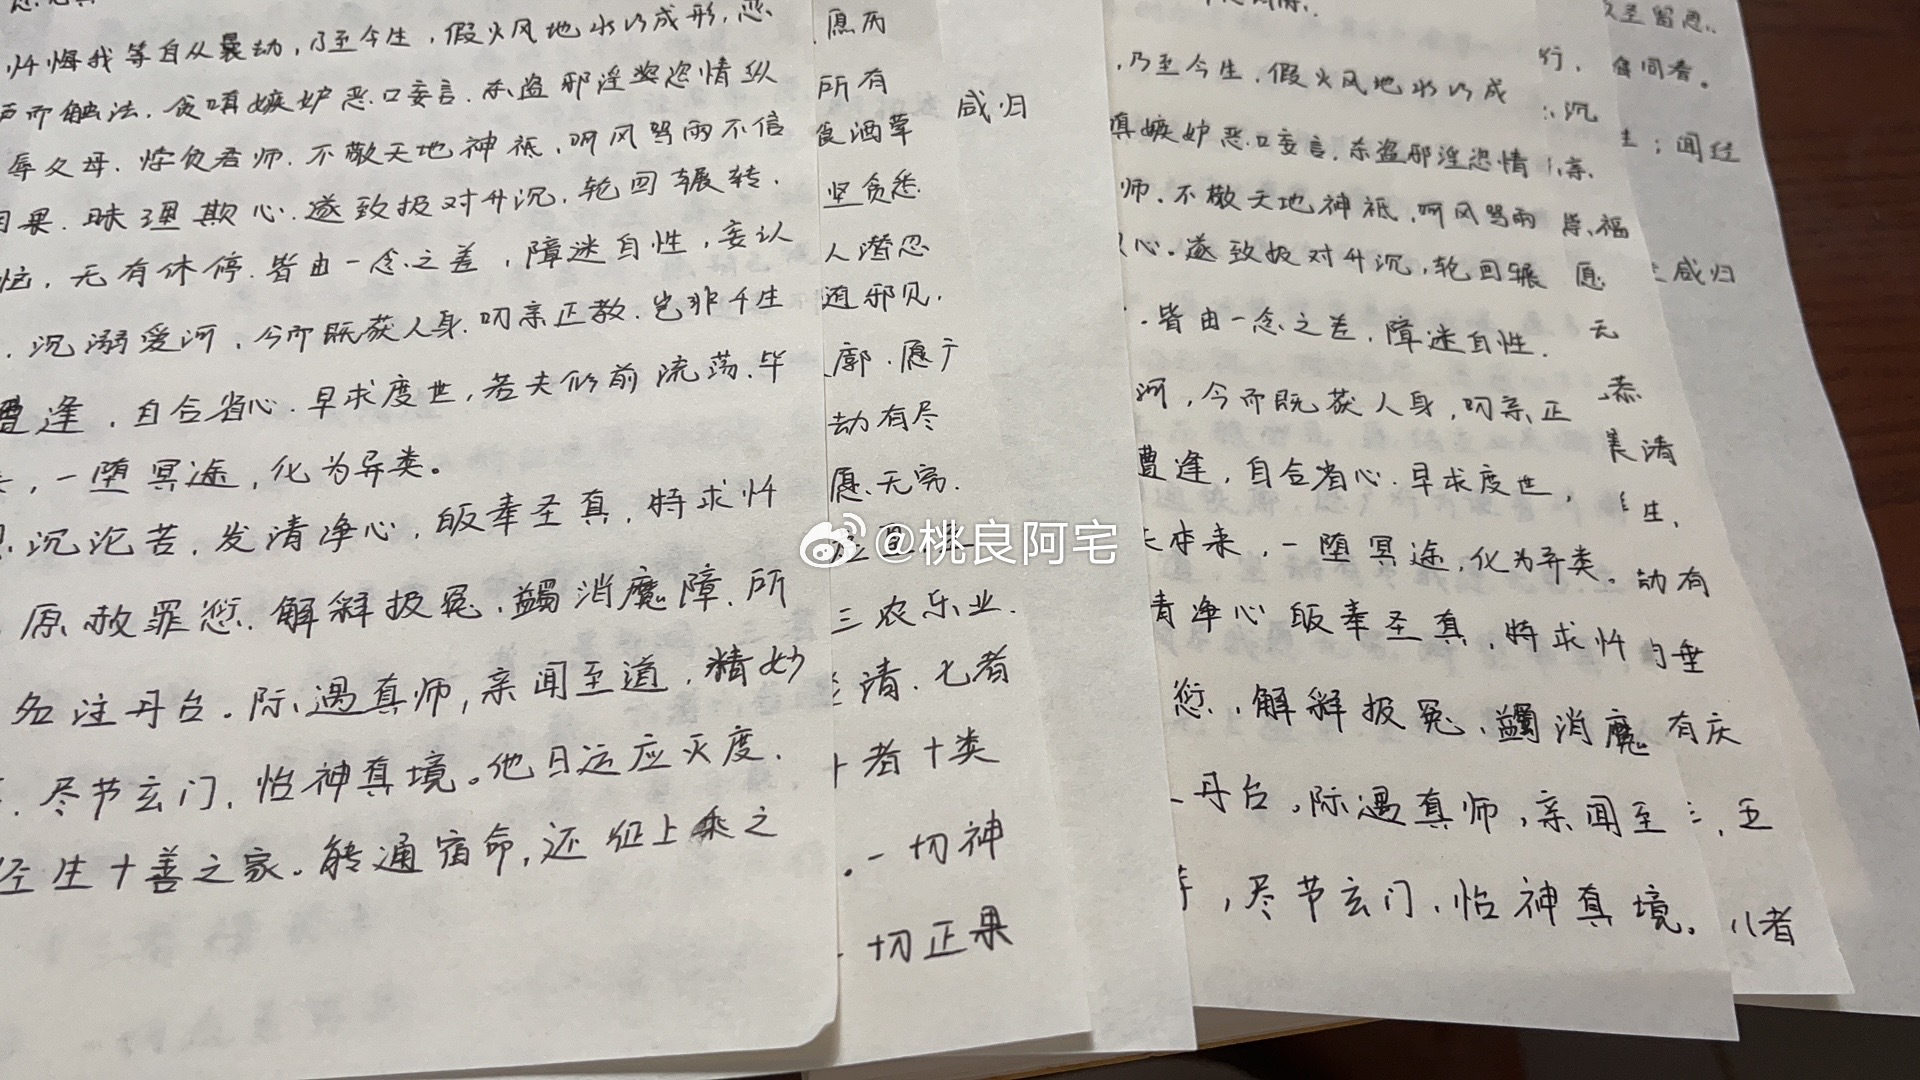 忏悔我等自从曩劫,乃至今生,假火风地水以成形,恣
而触法.贪嗔嫉妒恶口妄言.杀盗邪淫恣情纵
辱父母.悖负君师.不敬天地神祇,呵风骂雨不信
因果.昧理欺心.遂致报对升沉.轮回辗转.
恼,无有休停.皆由一念之差,障迷自性,妄认
.沉溺爱河,今而既获人身.叨亲正教.岂非千生
遭逢,自合省心.早求度世,若夫似前流荡.毕
,一堕冥途,化为异类。
.沉沦苦,发清净心,皈奉圣真,特求忏
原赦罪愆.解释报冤.蠲消魔障.所
名注丹台。际遇真师,亲闻至道,精妙
.尽节玄门,怡神真境。他日运应灭度.
生十善之家。能通宿命,还征上乘之
愿而
所有
食酒荤
坚贪恚
人潜忍
邪见.
廓.愿于
劫有尽
愿无穷.
三农乐业.
清.七者
者十类
。一切神
一切正果
咸归
@桃良阿宅
,乃至今生,假火风地水以成
嗔嫉妒恶口妄言.杀盗邪淫恣情
师.不敬天地神祇,呵风骂雨
心。遂致报对升沉,轮回辗
.皆由一念之差,障迷自性.
河,今而既获人身,叨亲正
遭逢,自合省心.早求度世,
本来,一堕冥途,化为异类。
清净心皈奉圣真,特求忏
愆.解释报冤.蠲消魔
丹台。际遇真师,亲闻至
,尽节玄门,怡神真境。
行,
沉
亲.
福
愿
无
恭
清
生,
劫有
垂
有庆
三,五
八者
同看。
生;闻经
咸归